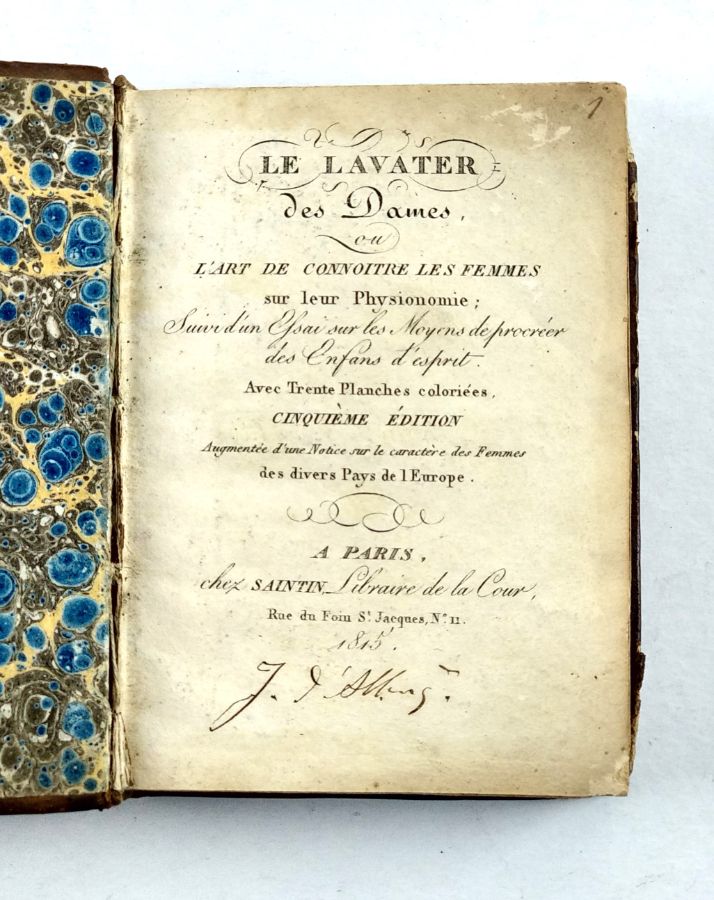 1
LE LAVATER
des Dames,
ou
L'ART DE CONNOITRE LES FEMMES
sur leur Physionomie;
Suivi d'un Essai sur les Moyens de procréer
des Enfans d'esprit.
Avec Trente Planches coloriées,
CINQUIÈME ÉDITION
Augmentée d'une Notice sur le caractère des Femmes
des divers Pays de l'Europe.
A PARIS,
chez SAINTIN Libraire de la Cour,
Rue du Foin St. Jacques, No. 11.
1815.
J. d'